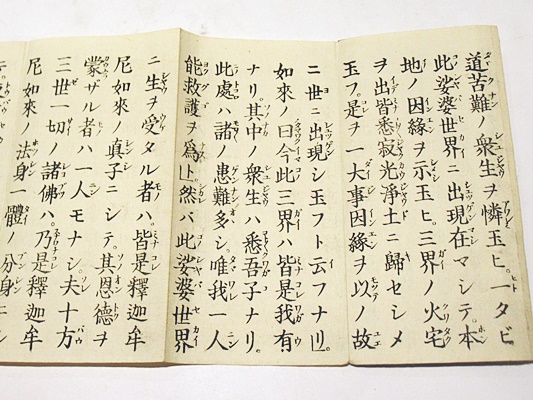 道苦難ノ衆生ヲ憐玉ヒ。一タビ
此娑婆世界ニ出現在マシテ。本
地ノ因縁ヲ示玉ヒ。三界ノ火宅
ヲ出皆悉寂光淨土ニ歸セシメ
玉フ。是ヲ一大事因縁ヲ以ノ故
ニ世ニ出現シ玉フト云フナリ。
如來ノ曰今此三界ハ皆是我有
ナリ。其中ノ衆生ハ悉吾子ナリ。
此處ノ諸ノ患難多シ。唯我一人
能救護ヲ爲ト。然バ此娑婆世界
ニ生ヲ受タル者ハ。皆是釋迦牟
尼如來ノ真子ニシテ。其恩德ヲ
蒙ザル者ハ一人モナシ。夫十方
三世一切ノ諸佛ハ。乃是釋迦牟
尼如來ノ法身一體ノ分身ニシ